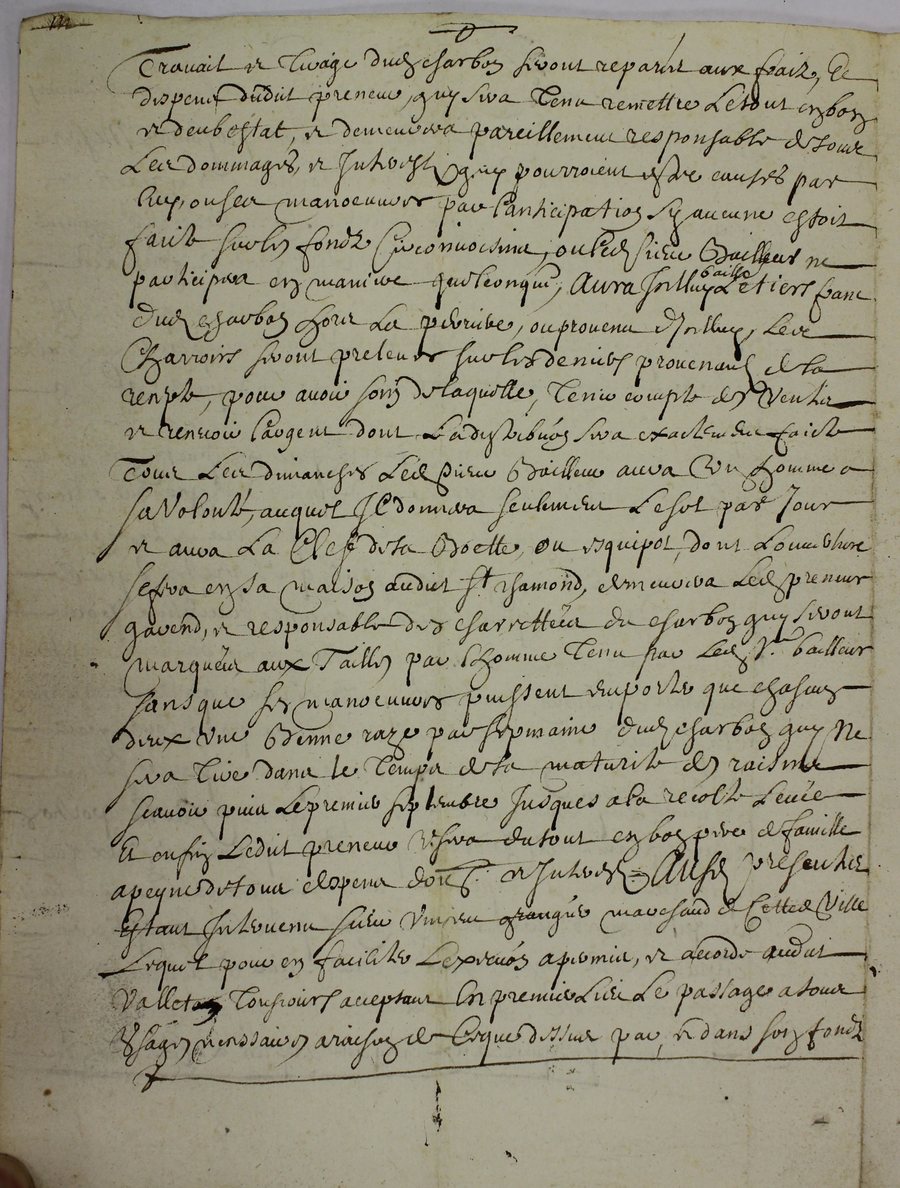 Travail et tirage dud charbon seront reparés aux fraix, et
despens dudit preneur, quy sera tenu remettre le tout en bon
et deub estat, et demeurera pareillement responsable de tous
Les dommages, et Interest quy pourroient estre causés par
luy, ou ses manoeuvres par l'anticipation sy aucune estoit
faite sur les fondz Circonvoisins, ou led sieur Bailleur ne
participera en maniere quelconque, Aura Iceluy bailleur Le tiers franc
dud charbon hors La perriere, ou provenu d'Icelluy, Les
Charrois seront prelevés sur les deniers provenans de la
vente, pour avoir soin de laquelle, tenir compte des ventes
et recevoir l'argent dont La distribuon sera exactement faite
Tous Les dimanches Led sieur Bailleur aura Un homme a
sa Volonté, auquel Il donnera seulement le sol par Jour
et aura La Clef de la Boette, ou esquipot, dont L'ouverture
se fera en sa maison audit St chamond, demeurera Led preneur
garend, et responsable des charretteurs du charbon quy seront
marqués aux Tailles par l'homme tenu par Led Sr bailleur
sans que ses manoeuvres puissent emporter que chascun
deux une Benne raze par sepmaine dud charbon quy Ne
sera tiré dans le temps de la maturité des raisins
scavoir puis Le premier septembre Jusques a la recolte Levée
Et enfin Ledit preneur Usera du tout en bon pere de famille
a peyne de tous despens dom. et Interest = Aus d presentes
Estant Intervenu sieur marchand de Cette Ville
Lequel pour en faciliter L'execuon a permis, et accorde audit
Valleton Tousiours acceptant En premier Lieu Le passage a tous
Usages necessaires a raison de ce que dessus par, et dans son fondz